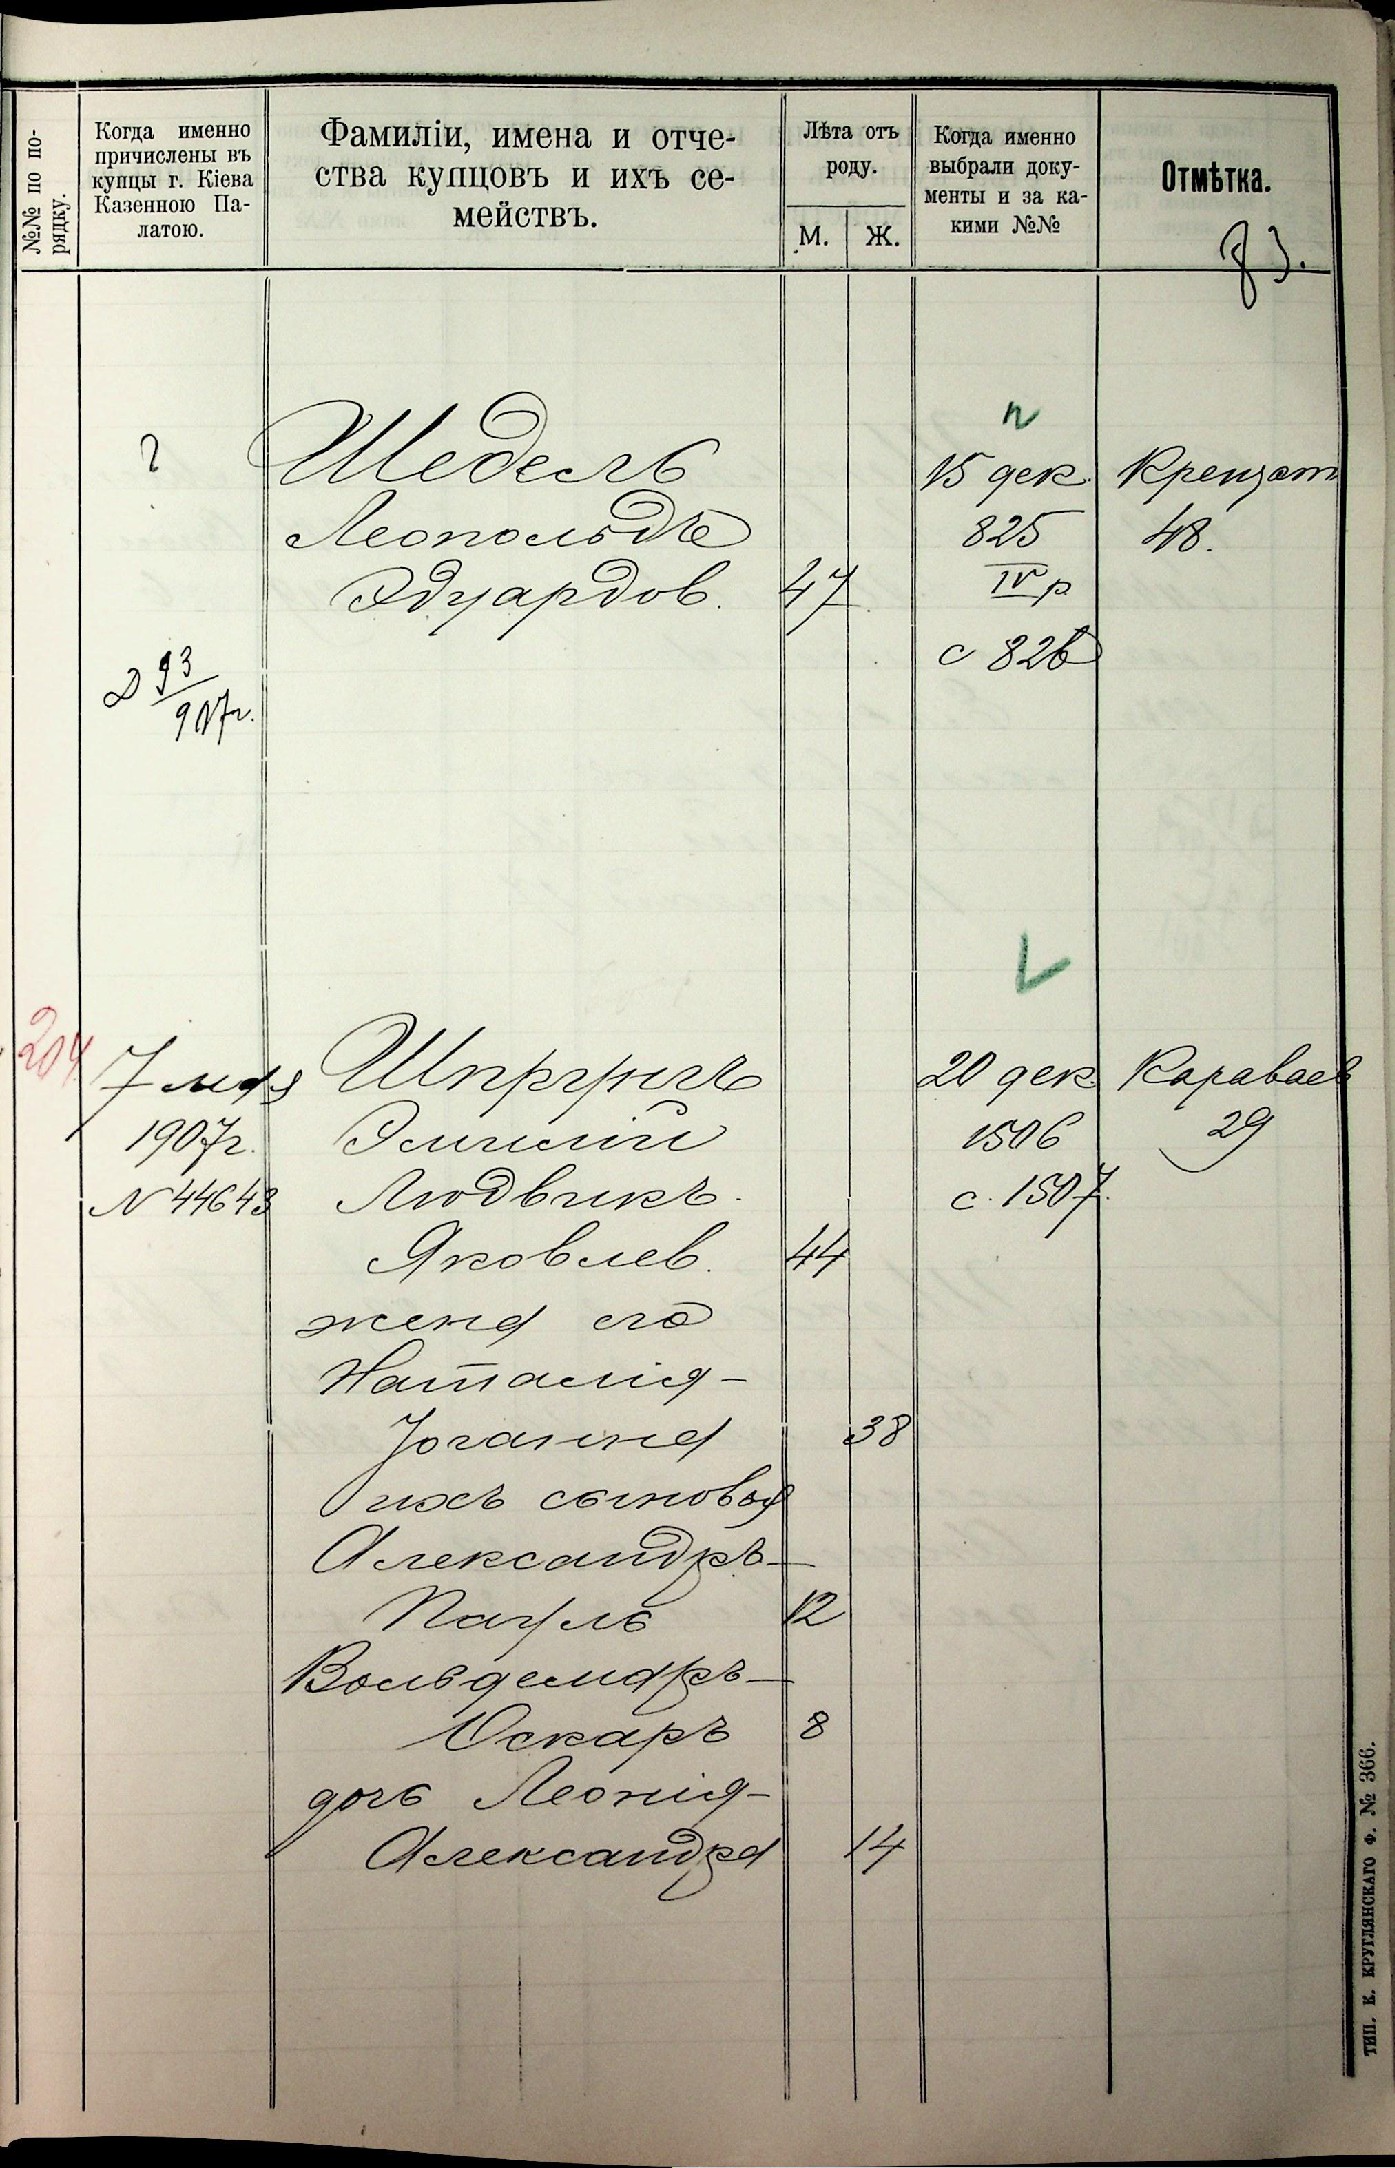 №№ по по-
рядку.
Когда именно
причислены въ
купцы г. Кіева
Казенною Па-
латою.
Фамиліи, имена и отче-
ства купцовъ и ихъ се-
мействъ.
Лѣта отъ
роду.
М.
Ж.
Когда именно
выбрали доку-
менты и за ка-
кими №№
Отмѣтка.
83.
?
Шедель
Леопольдъ
Эдуардов.
47
15 дек.
825
IV р
с 826
Крещат
48.
Д 93
907г.
204
7 мая
1907г.
N 44643
Шпрунгъ
Эмилій
Людвикъ.
Яковлев.
44
жена его
Наталія-
Іоганна
38
ихъ сыновья
Александръ-
Пауль
12
Вольдемаръ-
Оскаръ
8
дочь Леонія-
Александра
14
20 дек.
1506
с. 1507.
Караваев
29
ТИП. К. КРУГЛЯНСКАГО Ф. № 366.